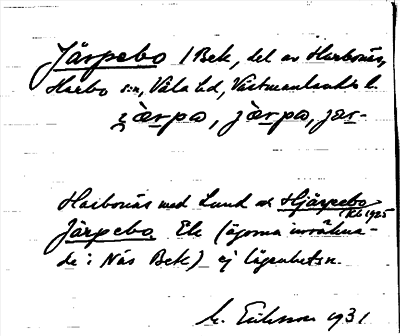 Järpebo / Bek, del av Harbonäs,
Harbo sn, Våla hd, Västmanlands l.
jàrpa, jàrpa, jar-
Harbonäs med Lund och Hjärpebo
Kb 1925
Järpebo Ek (ägorna inräkna-
de i Näs Bek) ej lägenheten.
Eriksson 1931